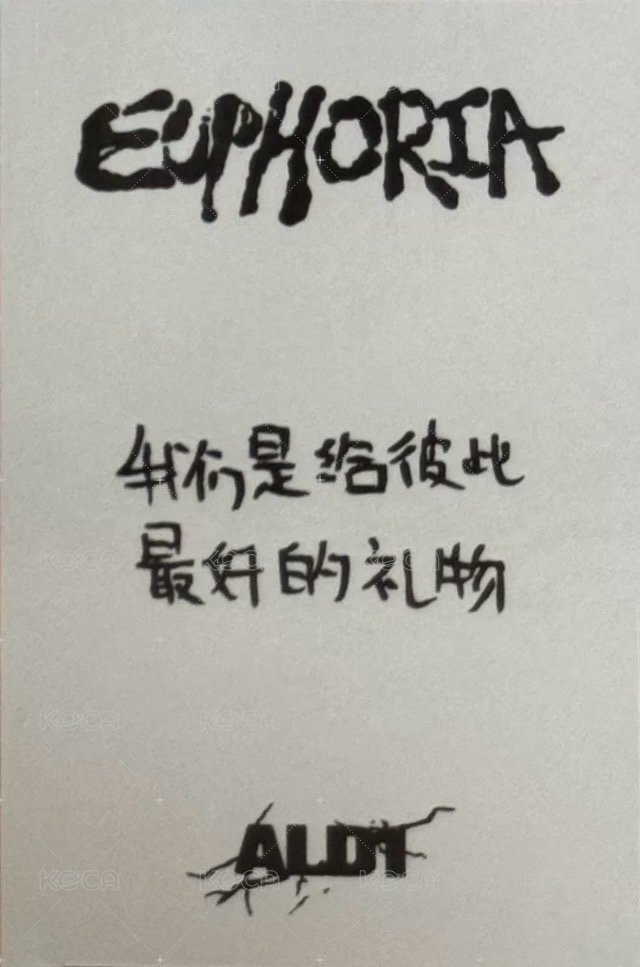 EUPHORIA
我们是给彼此
最好的礼物
ALD1
KOCA
KOCA
KOCA
KOCA
KOCA